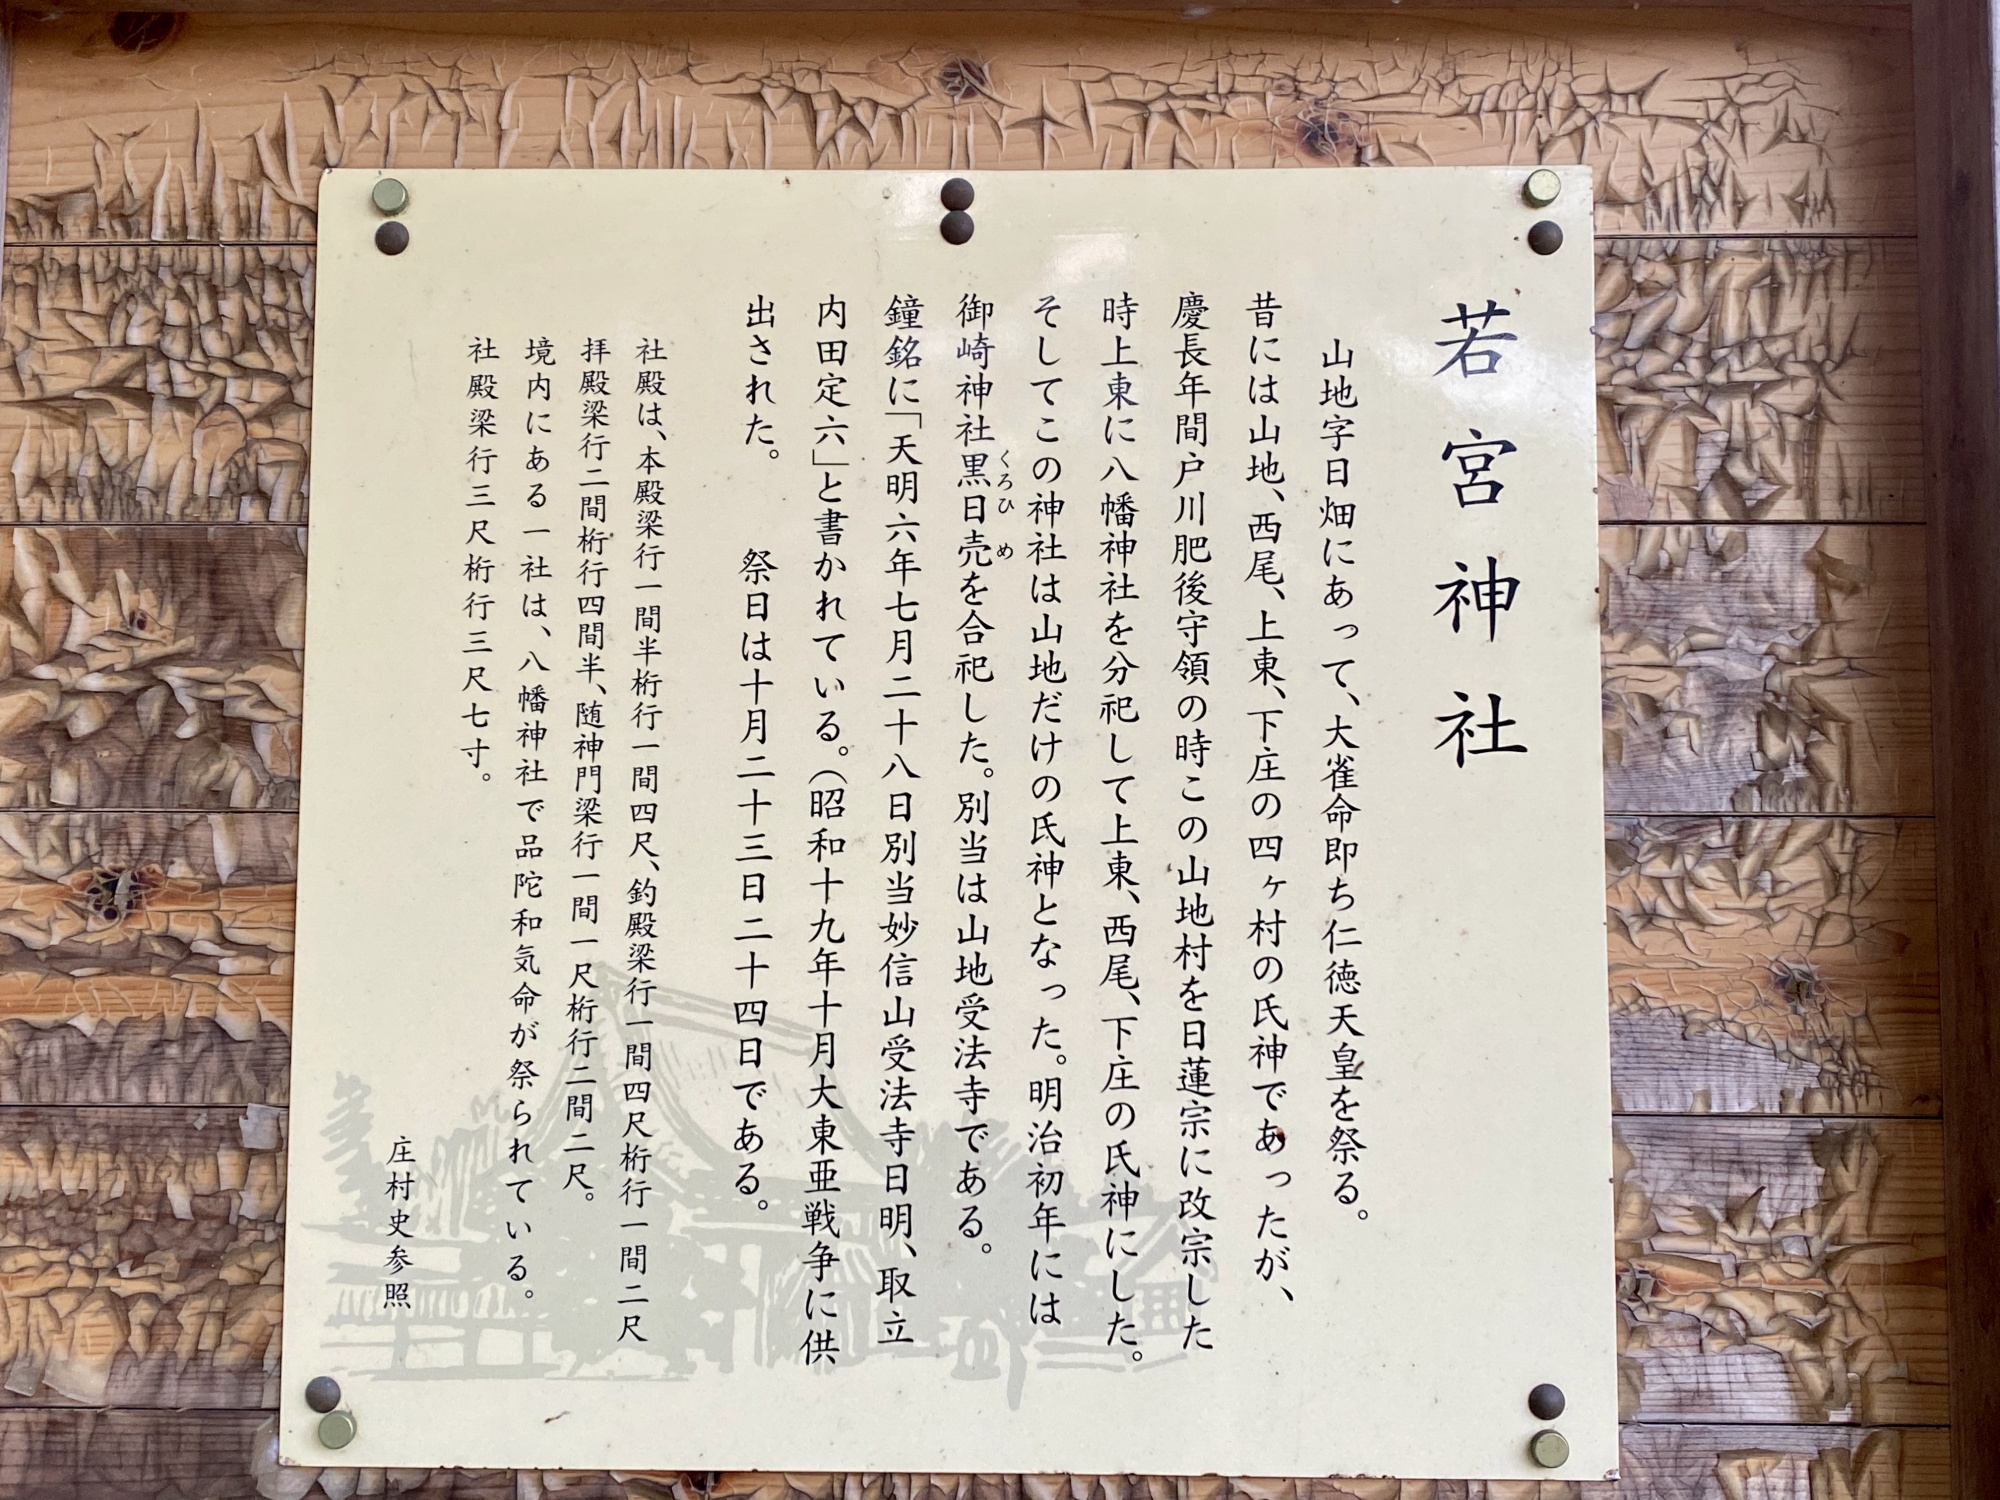 若宮神社
山地字日畑にあって、大雀命即ち仁徳天皇を祭る。
昔には山地、西尾、上東、下庄の四ヶ村の氏神であったが、
慶長年間戸川肥後守領の時この山地村を日蓮宗に改宗した
時上東に八幡神社を分祀して上東、西尾、下庄の氏神にした。
そしてこの神社は山地だけの氏神となった。明治初年には
御崎神社黒日売を合祀した。別当は山地受法寺である。
くろひめ
鐘銘に「天明六年七月二十八日別当妙信山受法寺日明、取立
内田定六」と書かれている。(昭和十九年十月大東亜戦争に供
出された。　祭日は十月二十三日二十四日である。
社殿は、本殿梁行一間半桁行一間四尺、釣殿梁行一間四尺桁行一間二尺
拝殿梁行二間桁行四間半、随神門梁行一間一尺桁行二間二尺。
境内にある一社は、八幡神社で品陀和気命が祭られている。
社殿梁行三尺桁行三尺七寸。
庄村史参照